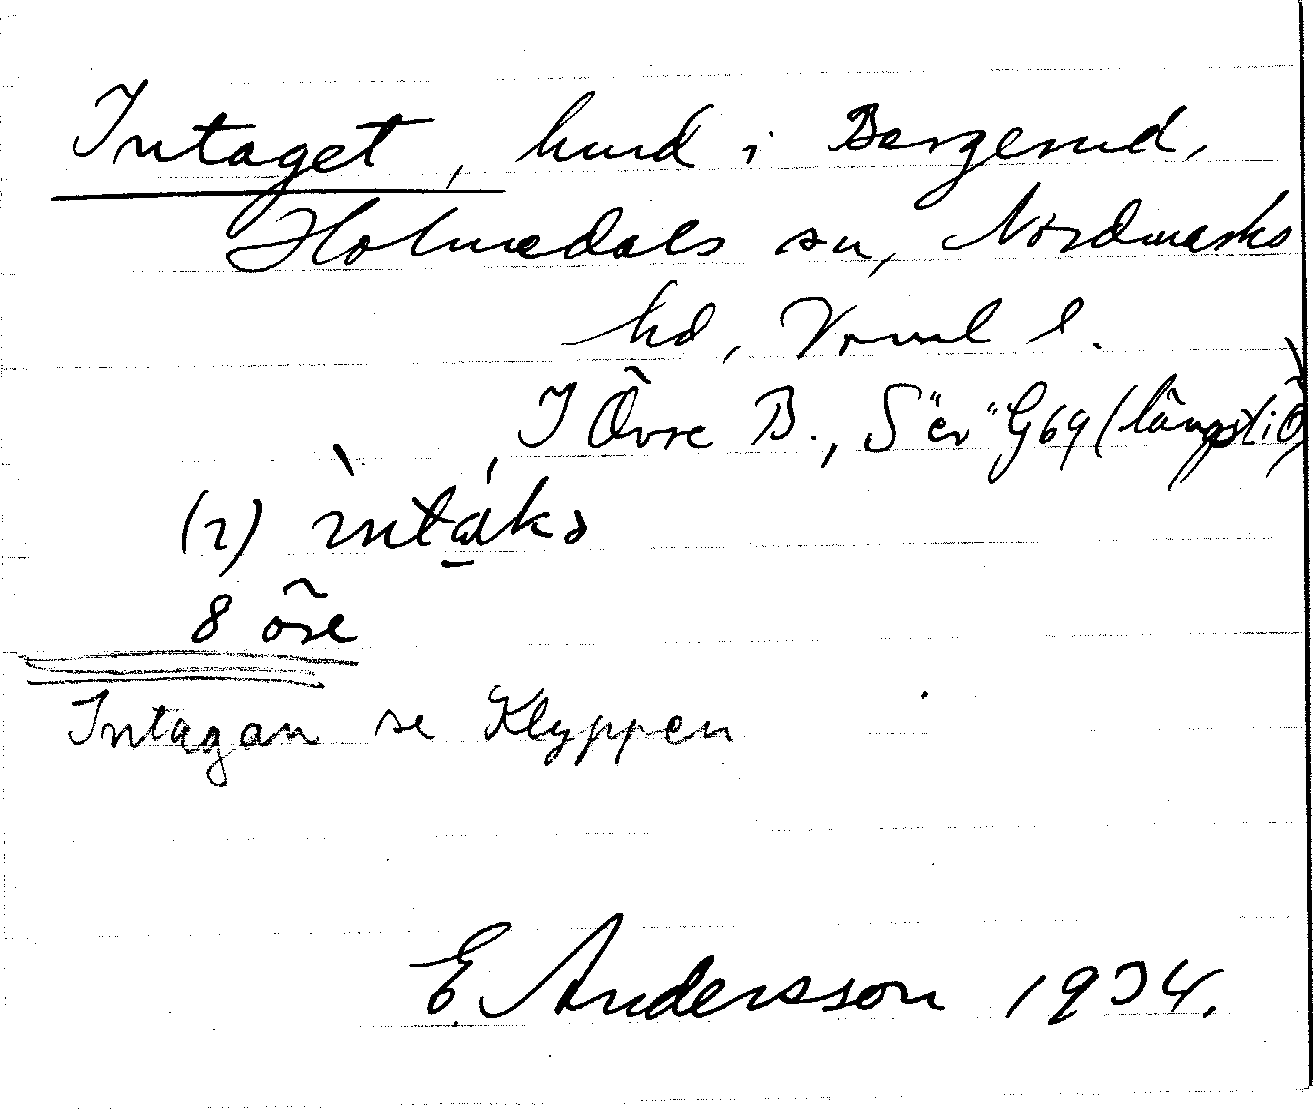 Intaget, hmd i Bergerud,
Holmedals sn, Nordmarks
hd, Vrml l.
I Övre B., S "ev" G69 (längst i Ö)
(2) ìntákə
8 öre
Intagan se Klyppen
E. Andersson 1934.